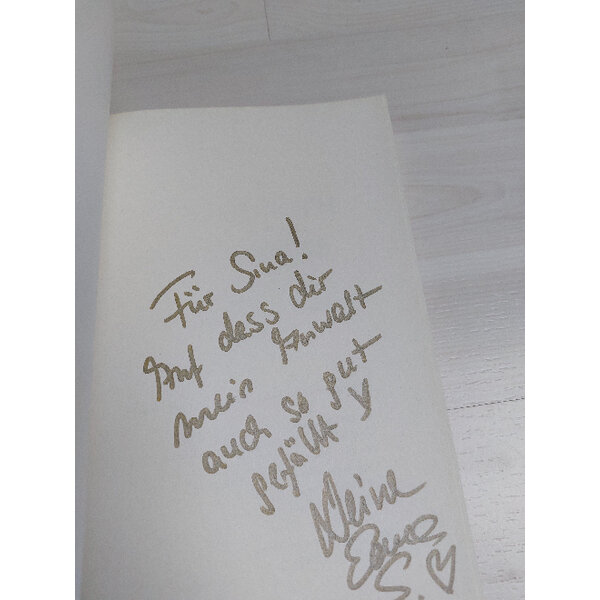 Für Sina!
Auf dass dir
mein Anwalt
auch so gut
gefällt
Deine
Emma
S.